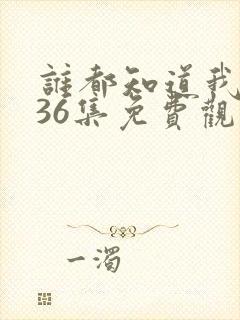 誰都知道我
36集免費觀
一濁